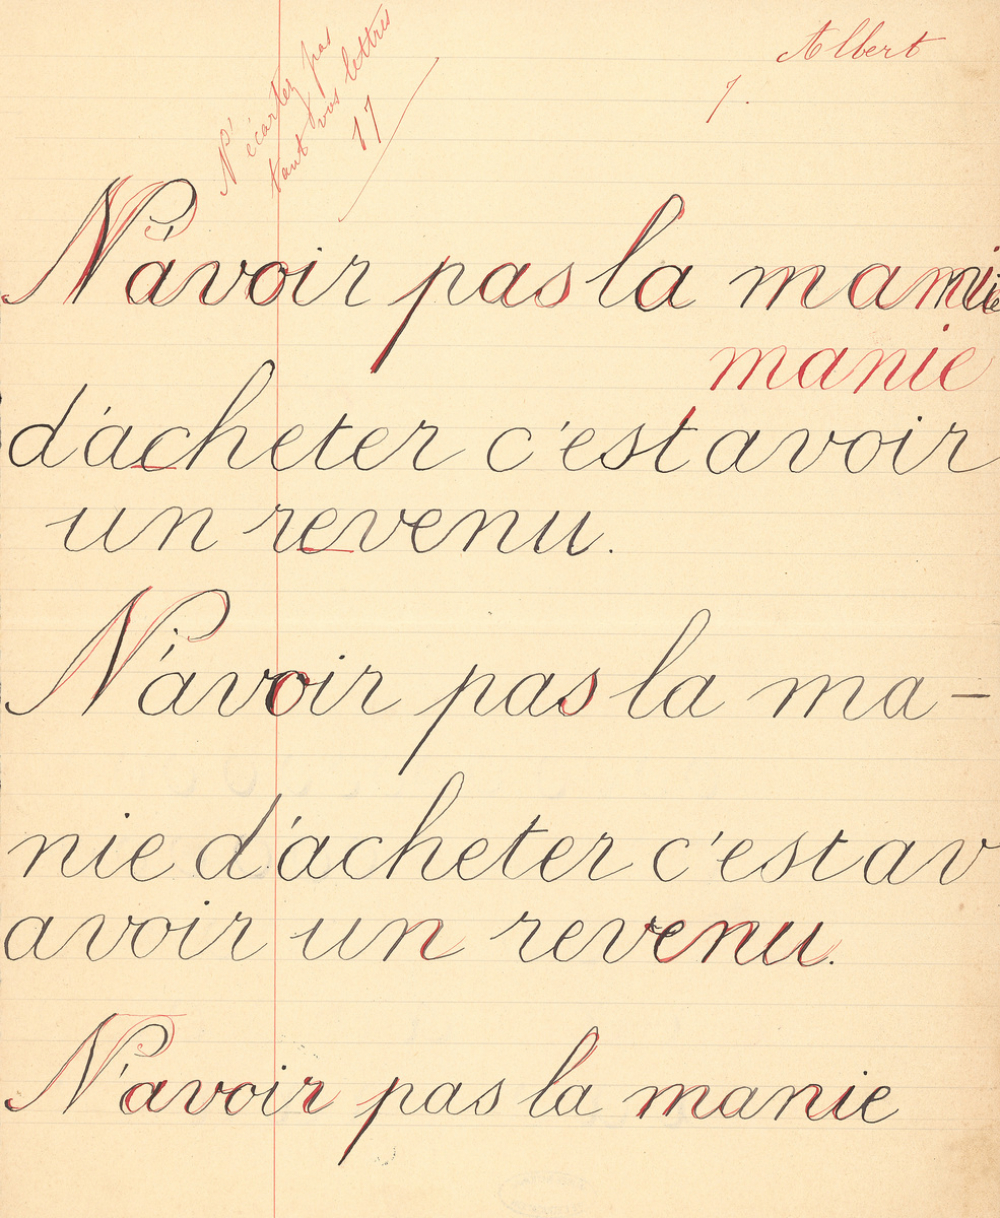 N'écartez pas
tant vos lettres
17
Albert
7.
N'avoir pas la manie
manie
d'acheter c'est avoir
un revenu.
N'avoir pas la ma-
nie d'acheter c'est av
avoir un revenu.
N'avoir pas la manie